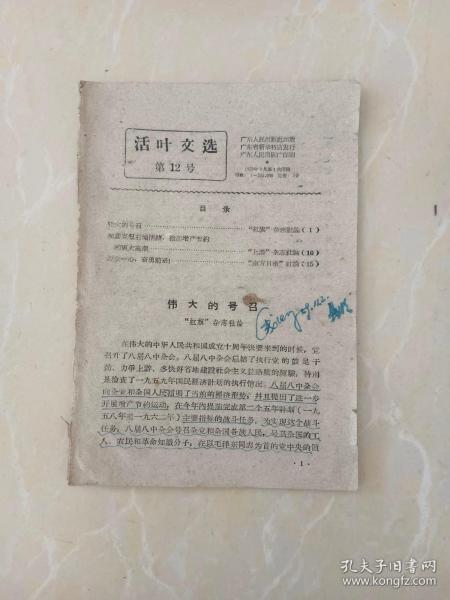 活叶文选
第12号
广东人民出版社出版
广东省新华书店发行
广东人民印刷厂印刷
目录
伟大的号召 “红旗”杂志社論(1)
“上游”杂志社論(10)
“南方日报”社論(15)
伟大的号召
“紅旗”杂志社論
在伟大的中华人民共和国成立十周年快要来到的时候，党
召开了八届八中全会。八届八中全会总結了执行党的鼓足干
劲、力争上游、多快好省地建設社会主义总路綫的經驗，特別
是检查了一九五九年国民經济計划的执行情况。八届八中全会
向全党和全国人民指明了当前的經济形势，并且提出了进一步
开展增产节約运动，在今年內提前完成第二个五年計划（一九
五八年至一九六二年）主要指标的战斗任务。为实現这个战斗
任务，八届八中全会号召全党和全国各族人民，号召全国的工
人、农民和革命知識分子，在以毛泽东同志为首的党中央的領
·1·
孔夫子旧书网
www.kongfz.com